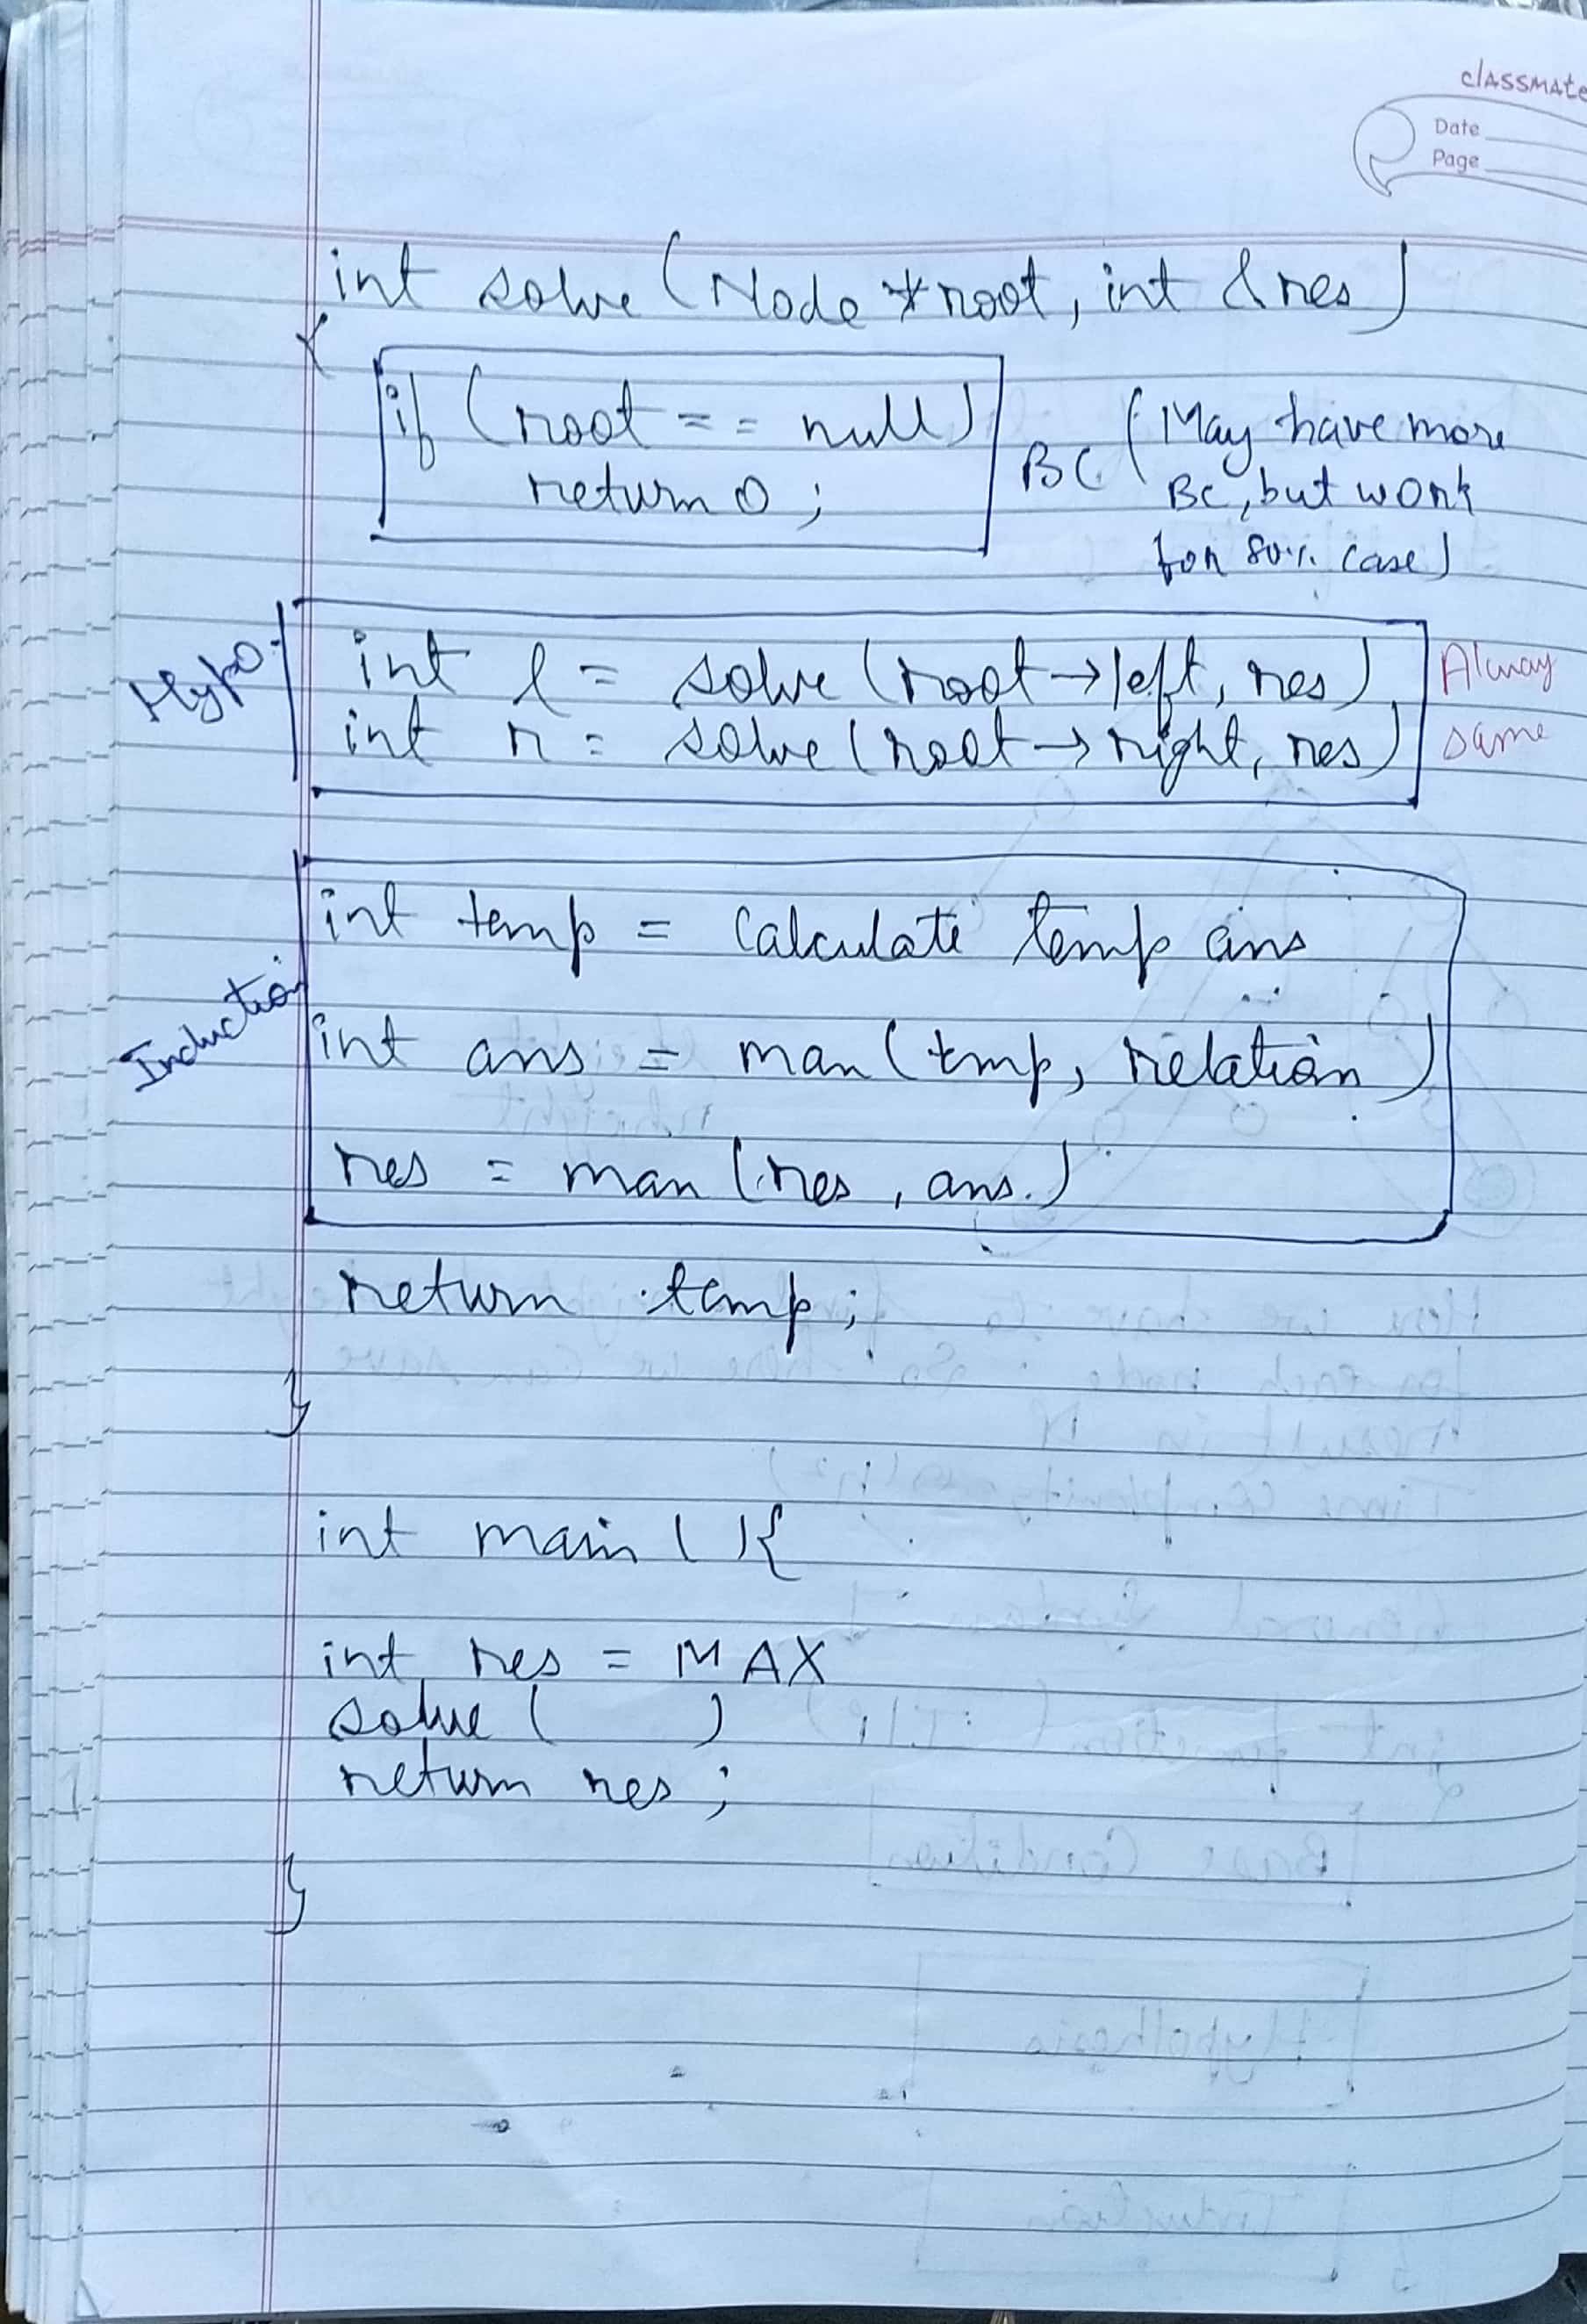 classmate
Date
Page
int solve (Node *root, int &res)
{
if (root == null)
return 0;
BC (May have more
BC, but work
for 80% case)
Hypo.
int l = solve (root→left, res)
int r = solve (root→right, res)
Alway
same
Induction
int temp = Calculate temp ans
int ans = max (tmp, relation)
res = max (res, ans.)
return temp;
}
int main ( ){
int res = MAX
solve ( )
return res;
}